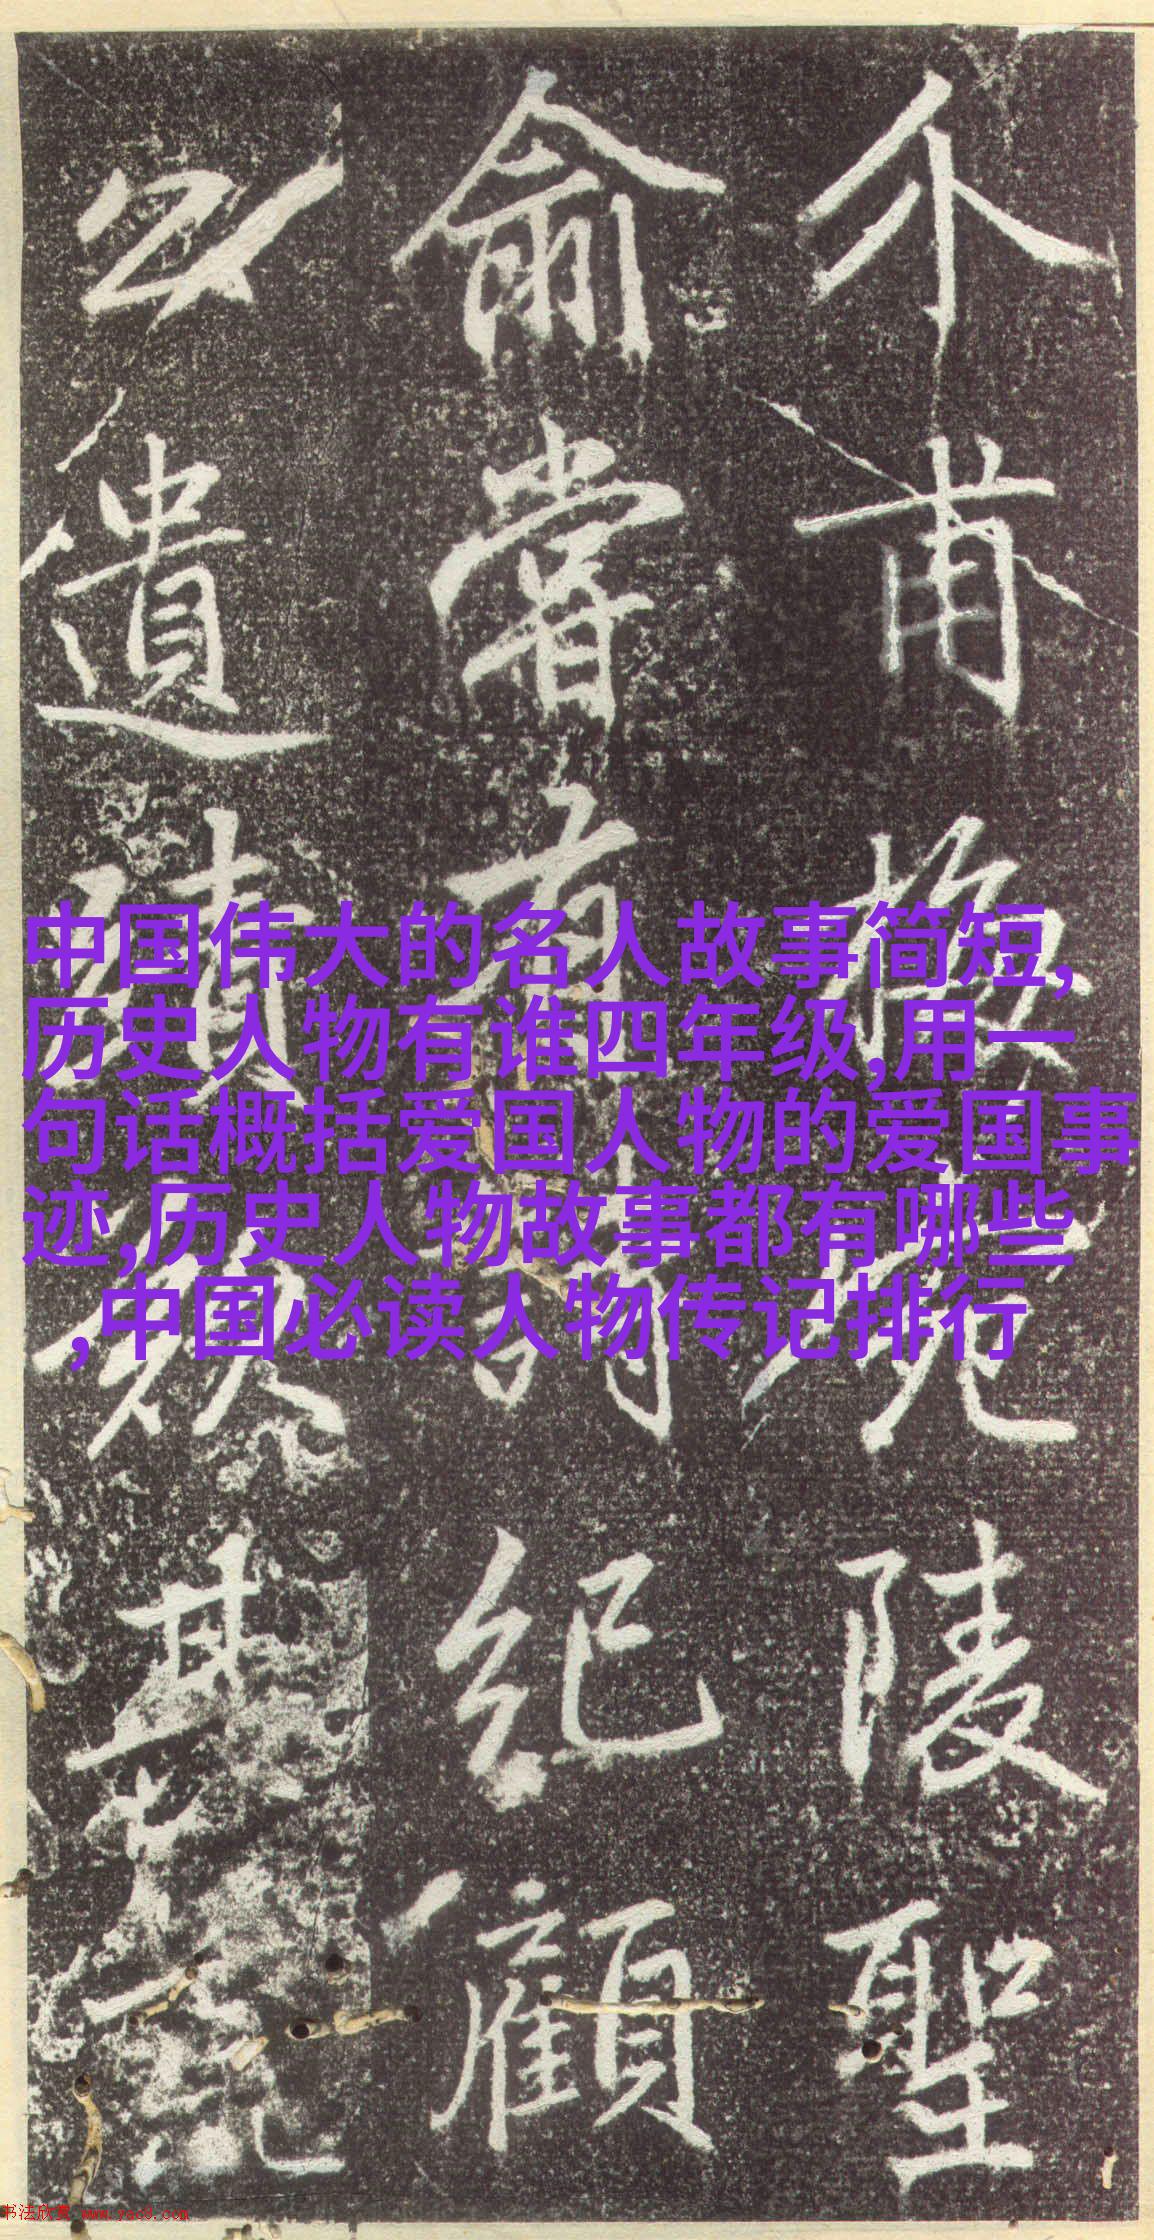 介甫極究陵聖
俞嘗有詩紀顧
公遺蹟
其
中国伟大的名人故事简短,
历史人物有谁四年级,用一
句话概括爱国人物的爱国事
迹,历史人物故事都有哪些
,中国必读人物传记排行
书法欣赏 www.yac8.com